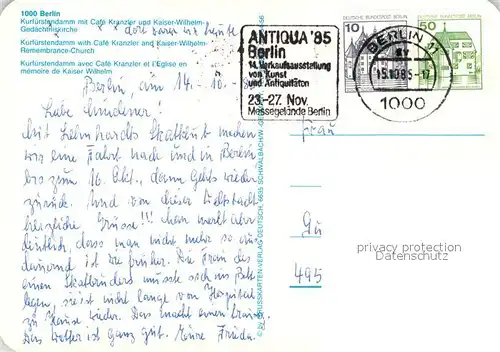 1000 Berlin
Kurfürstendamm mit Café Kranzler und Kaiser-Wilhelm-
Gedächtniskirche
Kurfürstendamm with Café Kranzler and Kaiser-Wilhelm-
Remembrance-Church
Kurfürstendamm avec Café Kranzler et l'Eglise en
mémoire de Kaiser Wilhelm
dort waren wir heute
Berlin, am 14.-10.-
Liebe
Mit Lehnhardts Skatklub machen
wir eine Fahrt nach und in Berlin
bis zum 16. Okt., dann gehts wieder
zurück. Und von dieser Weltstadt
herzliche Grüsse!!! Man merkt aber
deutlich, dass man nicht mehr so aus-
dauernd ist wie früher. Die Frau des
einen Skatbruders musste sich ins Bett
legen, sie ist nicht lange vom Hospital
zu Hause wieder. Das macht einen traurig.
Das Wetter ist ganz gut. Eure Frieda.
© by KRUSSKARTEN-VERLAG DEUTSCH, 6635 SCHWALBACH/W.
ANTIQUA '85
Berlin
14. Verkaufsausstellung
von Kunst
und Antiquitäten
23.-27. Nov.
Messegelände Berlin
10
DEUTSCHE BUNDESPOST BERLIN
50
BERLIN 11
15.10.85-17
1000
Frau
Gü
495
privacy protection
Datenschutz